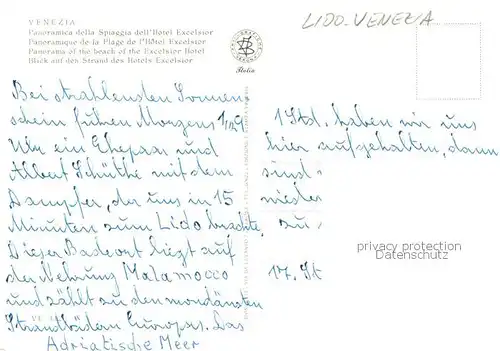 VENEZIA
Panoramica della Spiaggia dell'Hotel Excelsior
Panoramique de la Plage de l'Hôtel Excelsior
Panorama of the beach of the Excelsior Hotel
Blick auf den Strand des Hotels Excelsior
Italia
LIDO-VENEZIA
Bei strahlendem Sonnen
schein fuhren Morgens
Uhr ein Ehepaar und
Albert Schüthe mit dem
Dampfer, der uns in 15
Minuten zum Lido brachte,
Dieser Badeort liegt auf
der Nehrung Malamocco
und zählt zu den mondänsten
Strandbädern Europas. Das
Adriatische Meer
1 Std. haben wir uns
hier aufgehalten, dann
sind
wieder
zu
17. St
privacy protection
Datenschutz